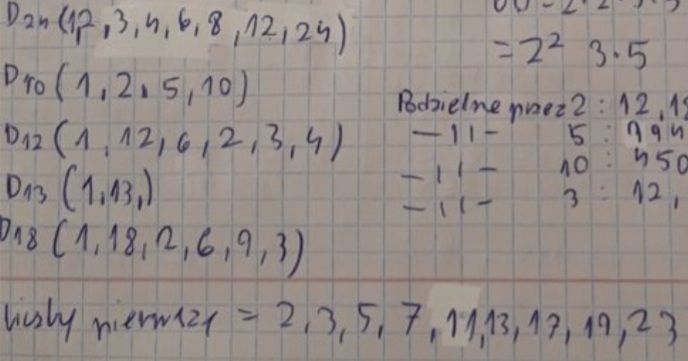 D24 (1,2,3,4,6,8,12,24)
D10 (1,2,5,10)
D12 (1,12,6,2,3,4)
D13 (1,13,)
D18 (1,18,2,6,9,3)
= 2² 3·5
Podzielne przez 2 : 12,18
—11— 5 :
—11— 10 : 450
—11— 3 : 12,
liczby pierwsze = 2,3,5,7,11,13,17,19,23